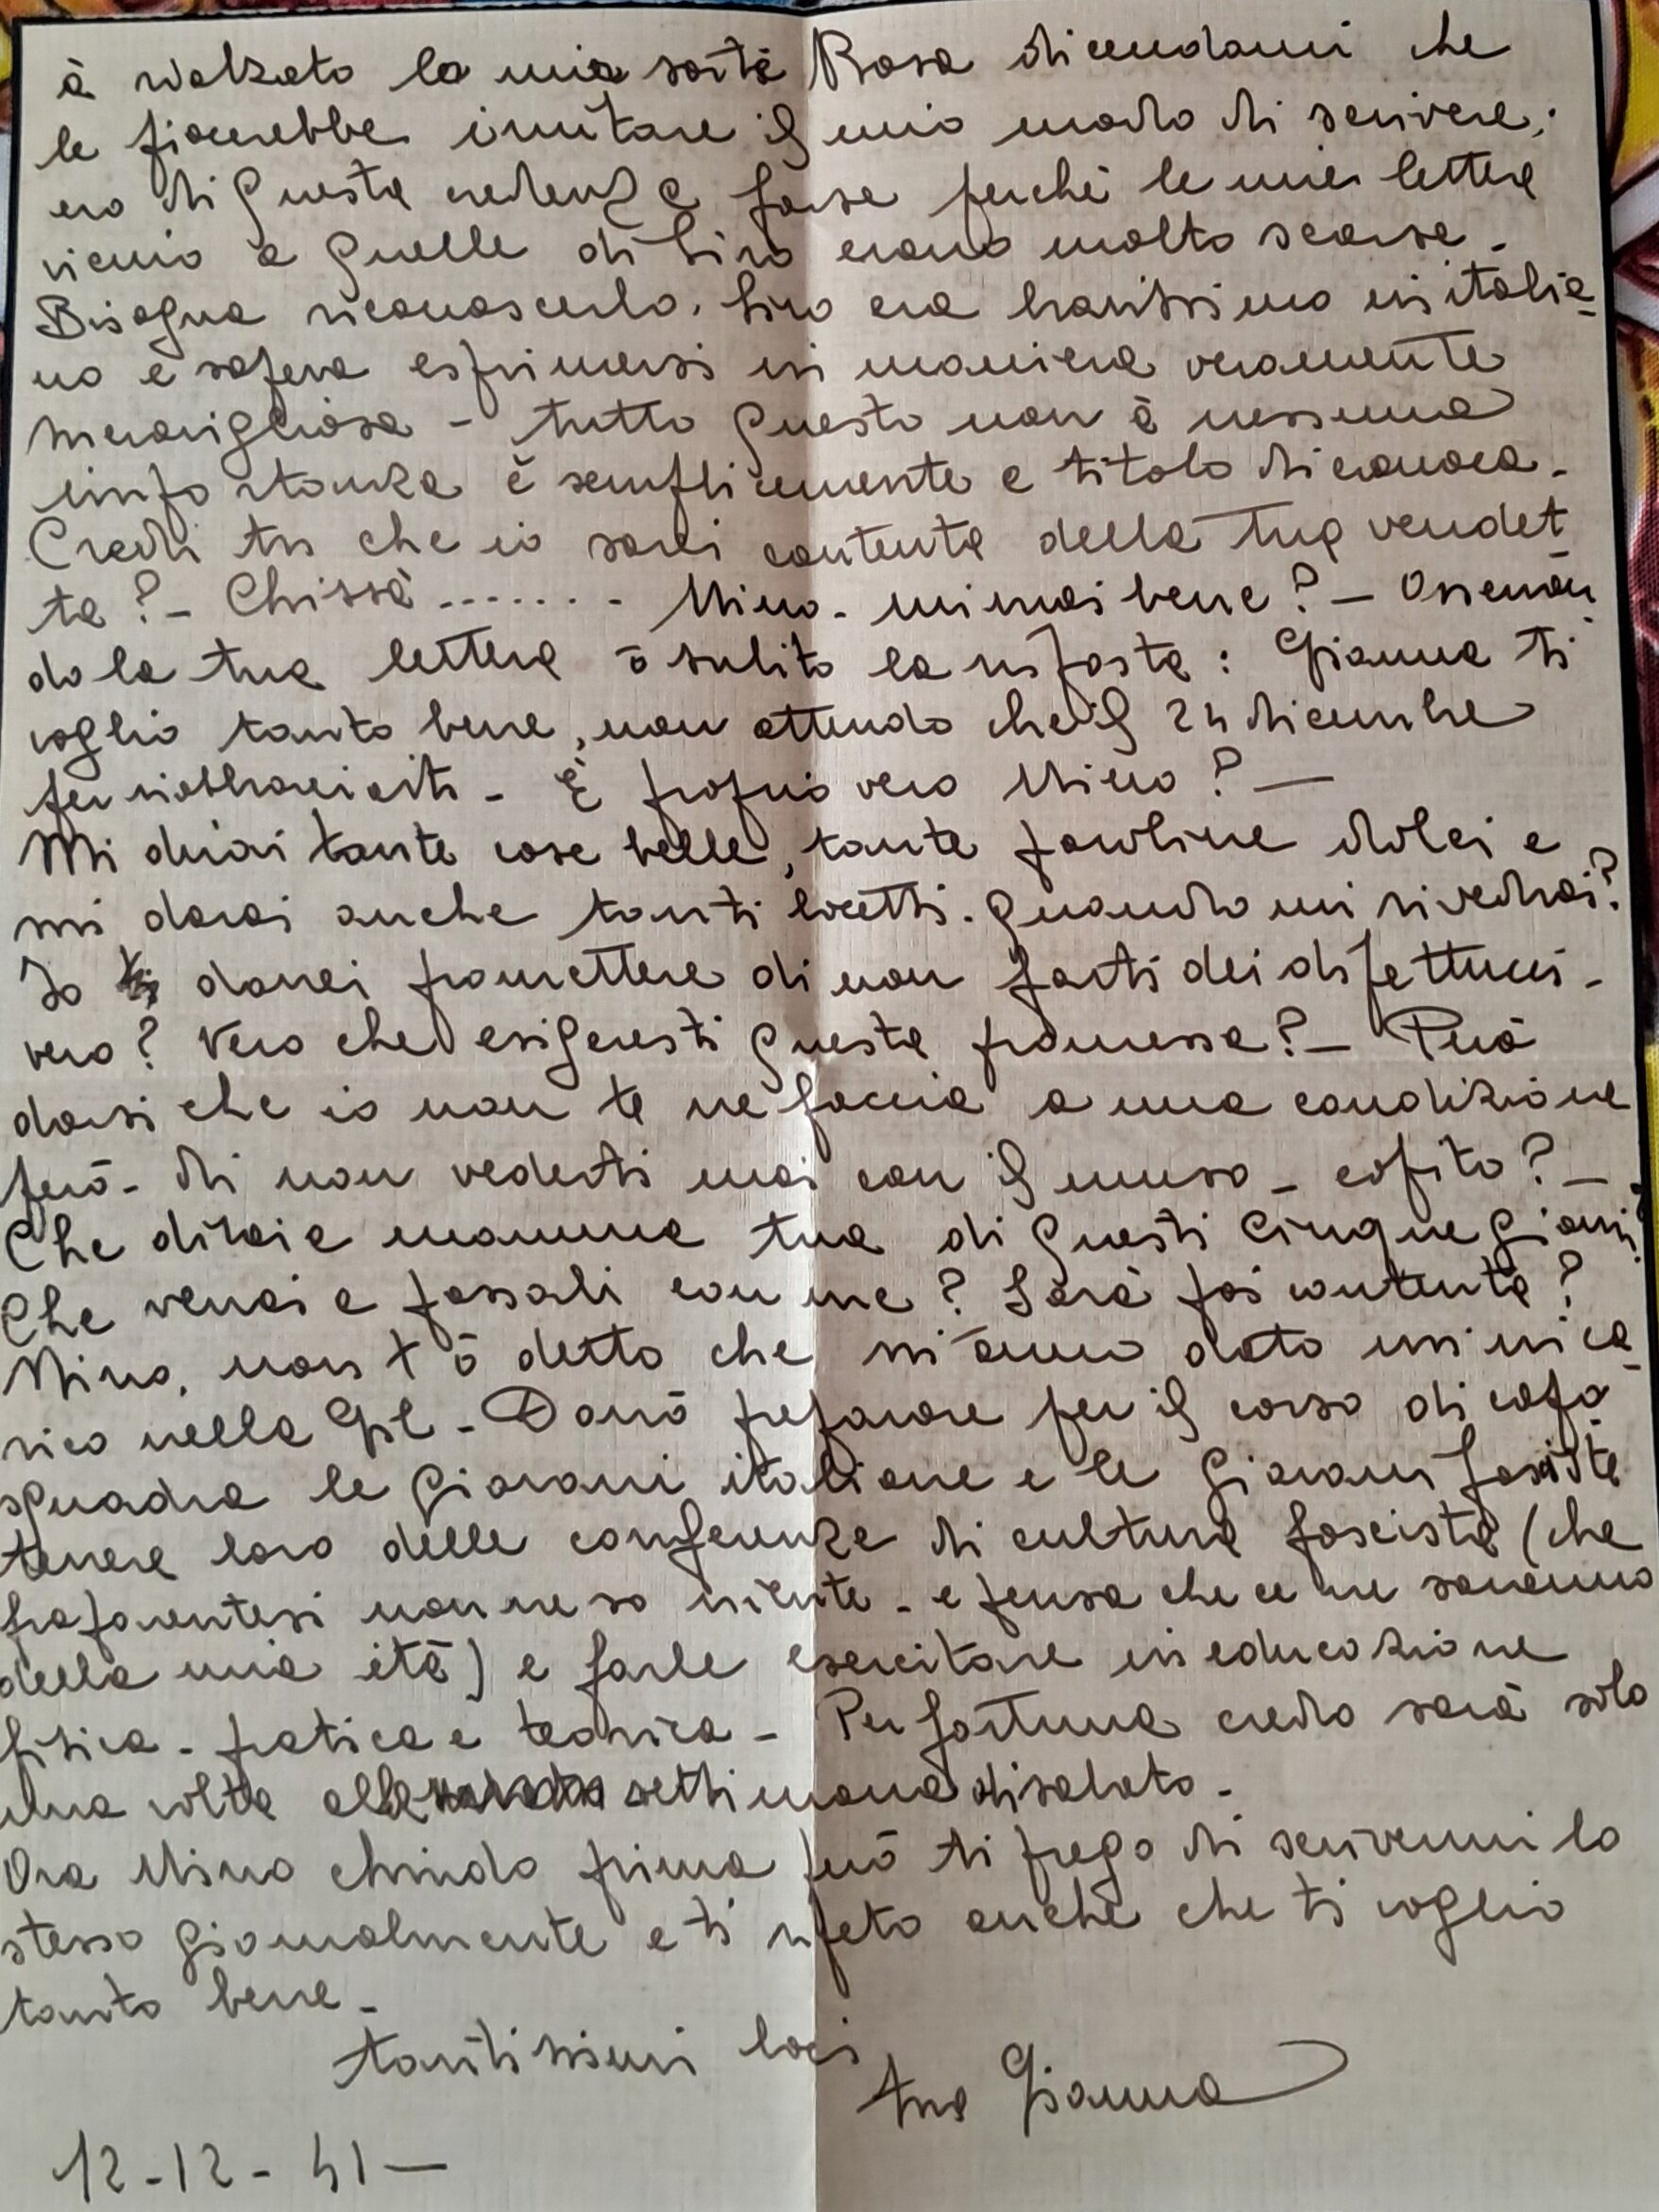 à rialzato la mia sorte Rosa dicendomi che
le piacerebbe imitare il mio modo di scrivere;
ero di questa credenza forse perché le mie lettere
vicino a quelle di Siro erano molto scarse -
Bisogna riconoscerlo. Siro era bravissimo in italia-
no e sapeva esprimersi in maniera veramente
meravigliosa - tutto questo non à nessuna
importanza è semplicemente a titolo di cronaca -
Credi tu che io sarei contenta della tua vendet-
ta? - Chissà ....... Nino - mi vuoi bene? -
do la tua lettera ò subito la risposta: Gianna ti
voglio tanto bene, non attendo che il 24 dicembre
per riabbracciarti - È proprio vero Nino? -
Mi dirai tante cose belle, tante paroline dolci e
mi darai anche tanti bacetti - quando mi rivedrai?
Io ti dovrei promettere di non farti dei dispettucci -
vero? Vero che esigeresti questa promessa? - Può
darsi che io non te ne faccia a una condizione
però - di non vederti mai con il muso - capito? -
Che dirai a mamma tua di questi cinque giorni?
Che verrai a passarli con me? Sarà poi contenta?
Nino, non t'ò detto che mi ànno dato un'inca-
rico nella Gil - Dovrò preparare per il corso di capo
squadra le giovani italiane e le giovani fasciste
tenere loro delle conferenze di cultura fascista (che
fra parentesi non ne so niente - e pensa che ce ne saranno
della mia età) e farle esercitare in educazione
fisica - pratica e teorica - Per fortuna credo sarà solo
una volta alla settimana di sabato -
Ora Nino chiudo prima però ti prego di scrivermi lo
stesso giornalmente e ti ripeto anche che ti voglio
tanto bene -
tantissimi baci
tua Gianna
12-12-41 -